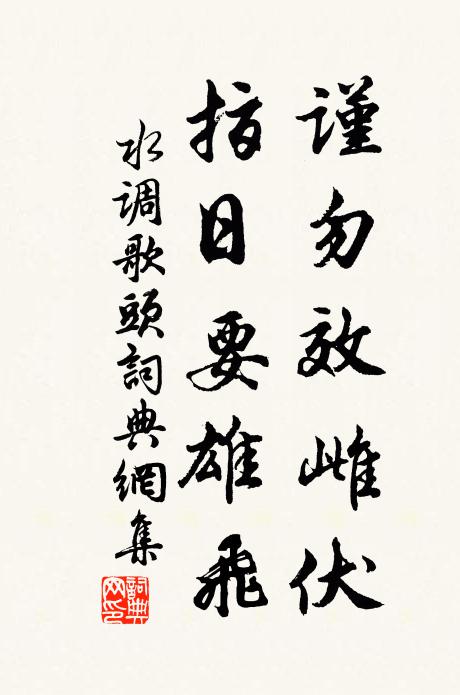 謹勿效雌伏
指日要雄飛
水調歌頭詞典網集
詞典
网印